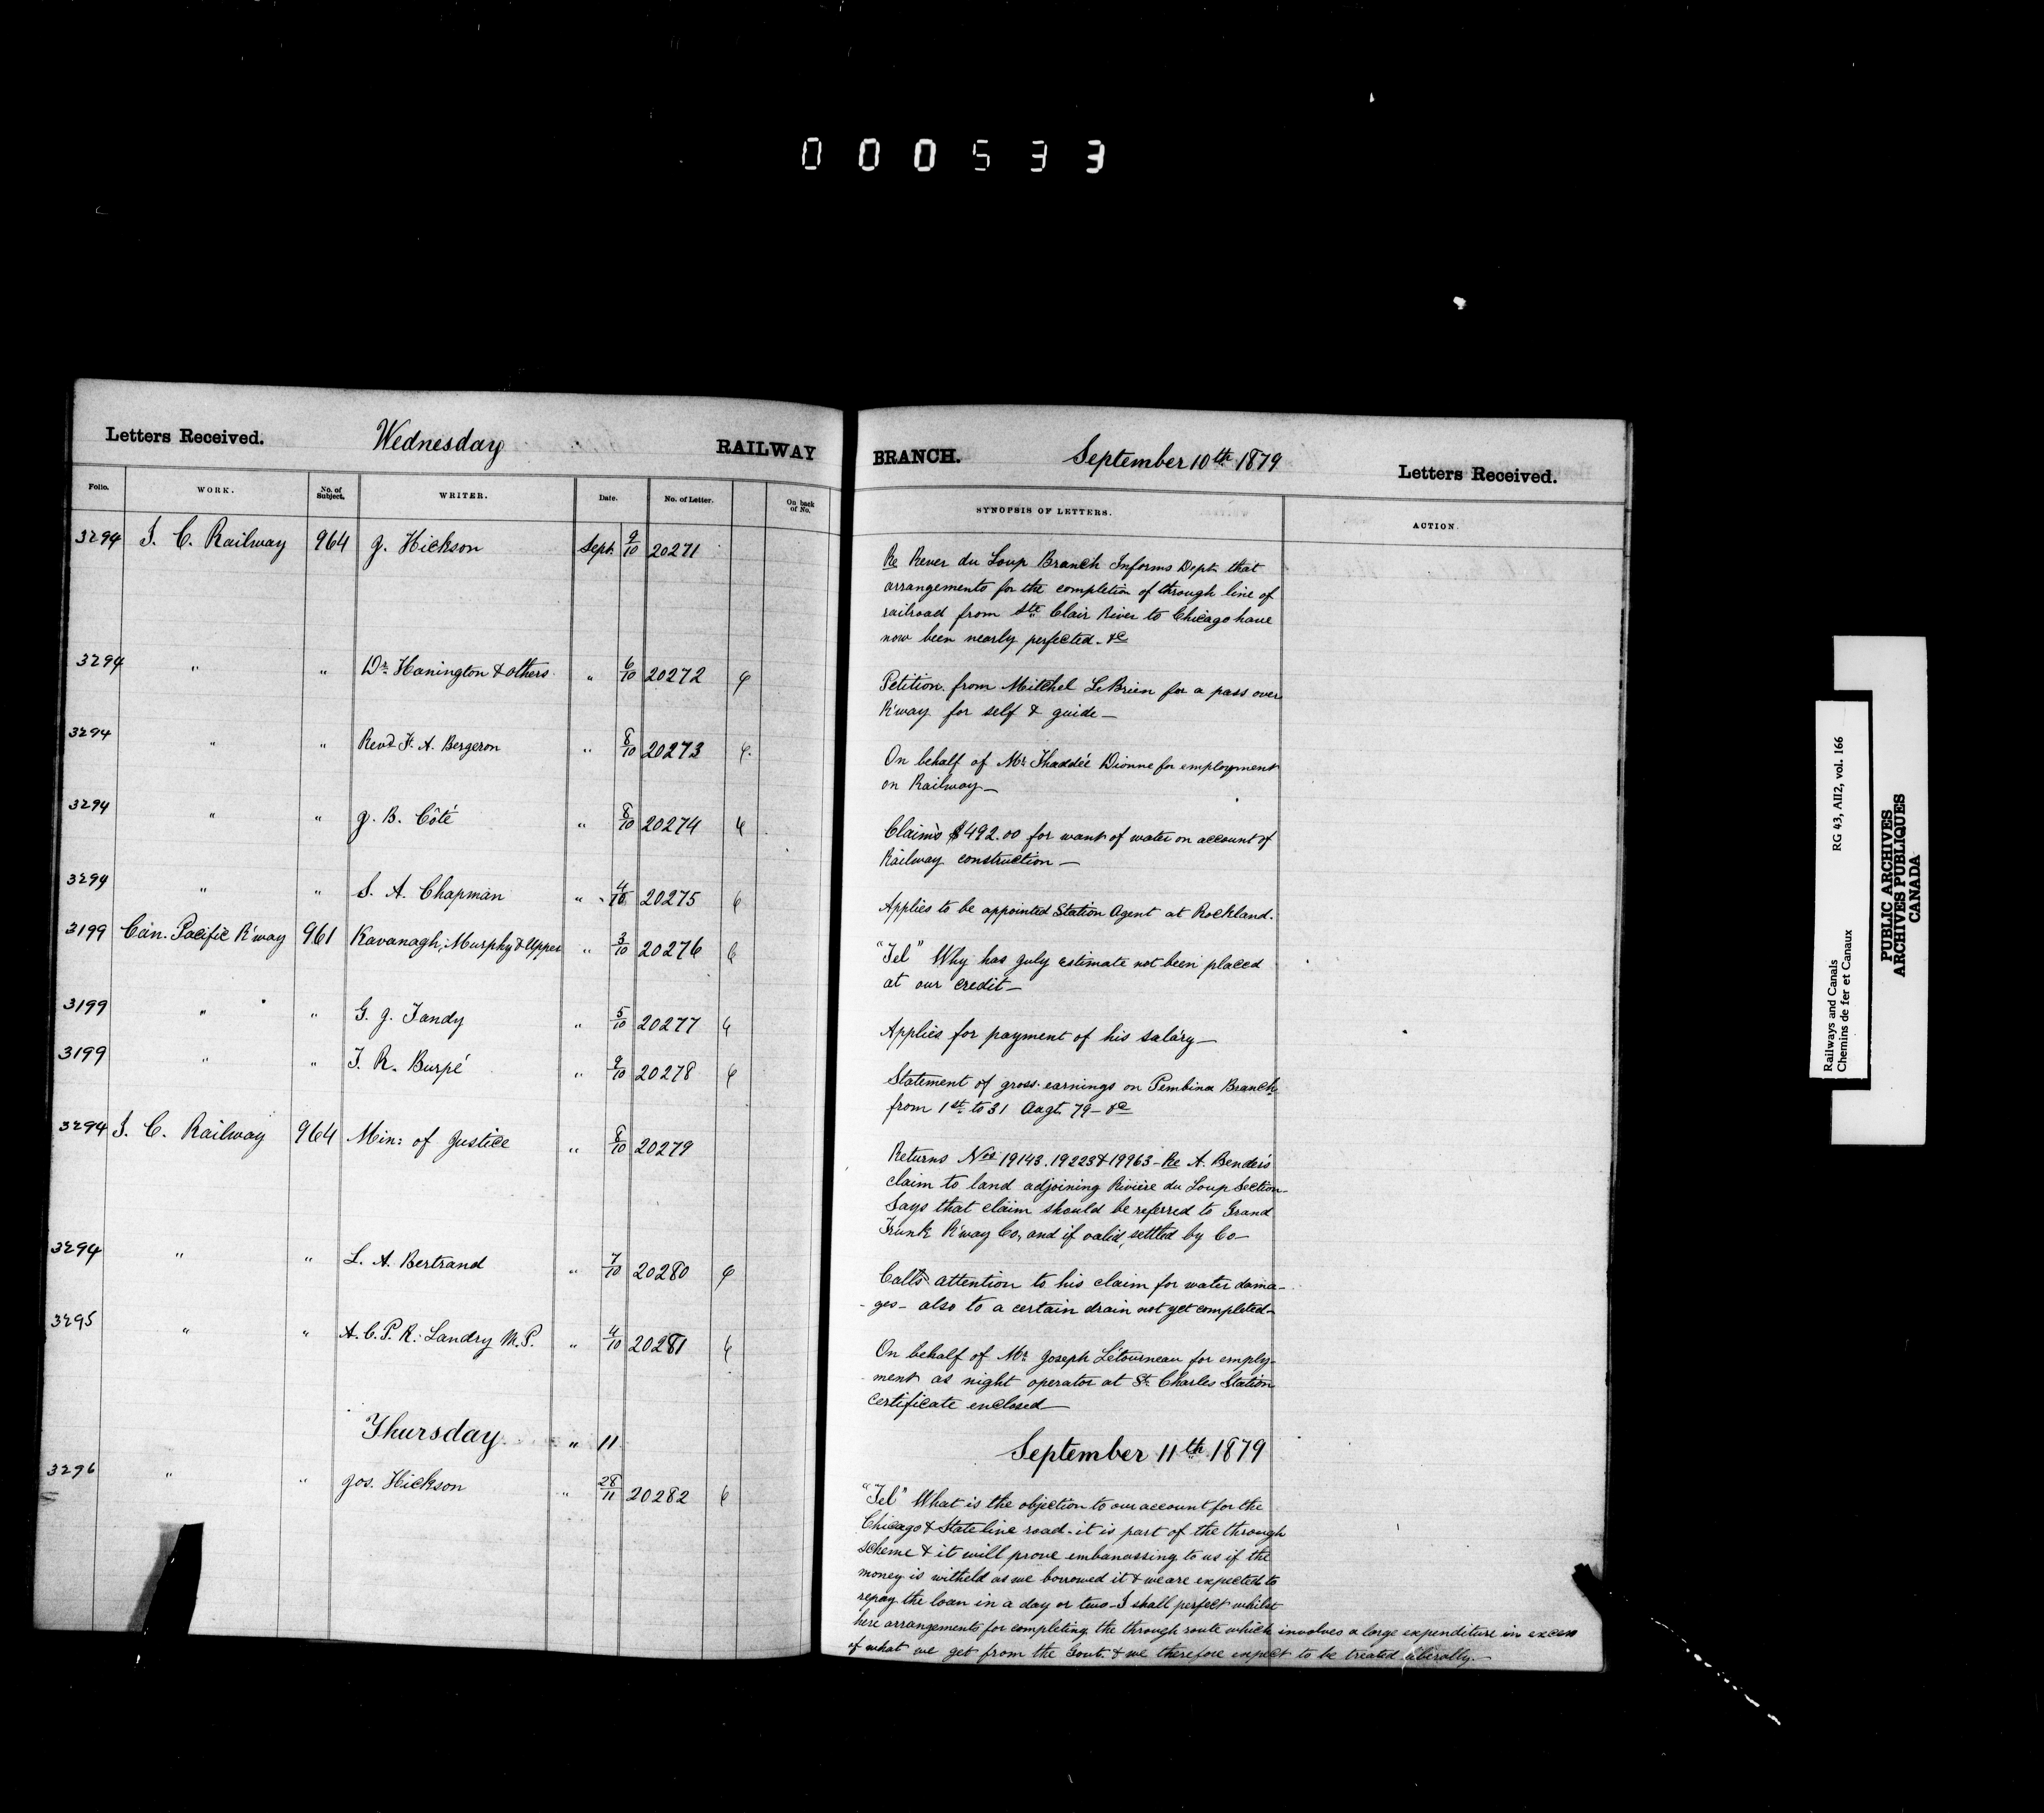 000533
Letters Received. Wednesday RAILWAY
Folio. WORK. No. of Subject. WRITER. Date. No. of Letter. On back of No.
3294 I. C. Railway 964 J. Hickson Sept. 9/10 20271
3294 " " Dr. Hanington & others " 6/10 20272 6
3294 " " Revd. F. A. Bergeron " 8/10 20273 6
3294 " " J. B. Côté " 8/10 20274 6
3294 " " S. A. Chapman " 4/10 20275 6
3199 Can. Pacific R'way 961 Kavanagh, Murphy & Upper " 3/10 20276 6
3199 " " G. J. Tandy " 5/10 20277 6
3199 " " T. R. Burpé " 9/10 20278 6
3294 I. C. Railway 964 Min: of Justice " 8/10 20279
3294 " " L. A. Bertrand " 7/10 20280 6
3295 " " A. C. P. R. Landry M.P. " 4/10 20281 6
Thursday " 11
3296 " " Jos. Hickson " 28/11 20282 6
BRANCH. September 10th 1879 Letters Received.
SYNOPSIS OF LETTERS. ACTION.
Re River du Loup Branch Informs Dept. that
arrangements for the completion of through line of
railroad from Ste Clair River to Chicago have
now been nearly perfected. &c
Petition from Mitchel LeBrien for a pass over
R'way for self & guide—
On behalf of Mr. Thaddée Dionne for employment
on Railway—
Claims $492.00 for want of water on account of
Railway construction—
Applies to be appointed Station Agent at Rockland.
"Tel" Why has July estimate not been placed
at our credit—
Applies for payment of his salary—
Statement of gross earnings on Pembina Branch
from 1st. to 31 Augt. 79— &c
Returns Nos 19143. 19223 & 19963— Re A. Bender's
claim to land adjoining Rivière du Loup Section—
Says that claim should be referred to Grand
Trunk R'way Co, and if valid, settled by Co—
Calls attention to his claim for water dama-
-ges— also to a certain drain not yet completed—
On behalf of Mr. Joseph Létourneau for employ-
ment as night operator at St. Charles Station
certificate enclosed—
September 11th 1879
"Tel" What is the objection to our account for the
Chicago & State line road— it is part of the through
scheme & it will prove embarrassing to us if the
money is witheld as we borrowed it & we are expected to
repay the loan in a day or two— I shall perfect whilst
here arrangements for completing the through route which involves a large expenditure in excess
of what we get from the Govt. & we therefore expect to be treated liberally.—
Railways and Canals RG 43, AII2, vol. 166
Chemins de fer et Canaux
PUBLIC ARCHIVES
ARCHIVES PUBLIQUES
CANADA